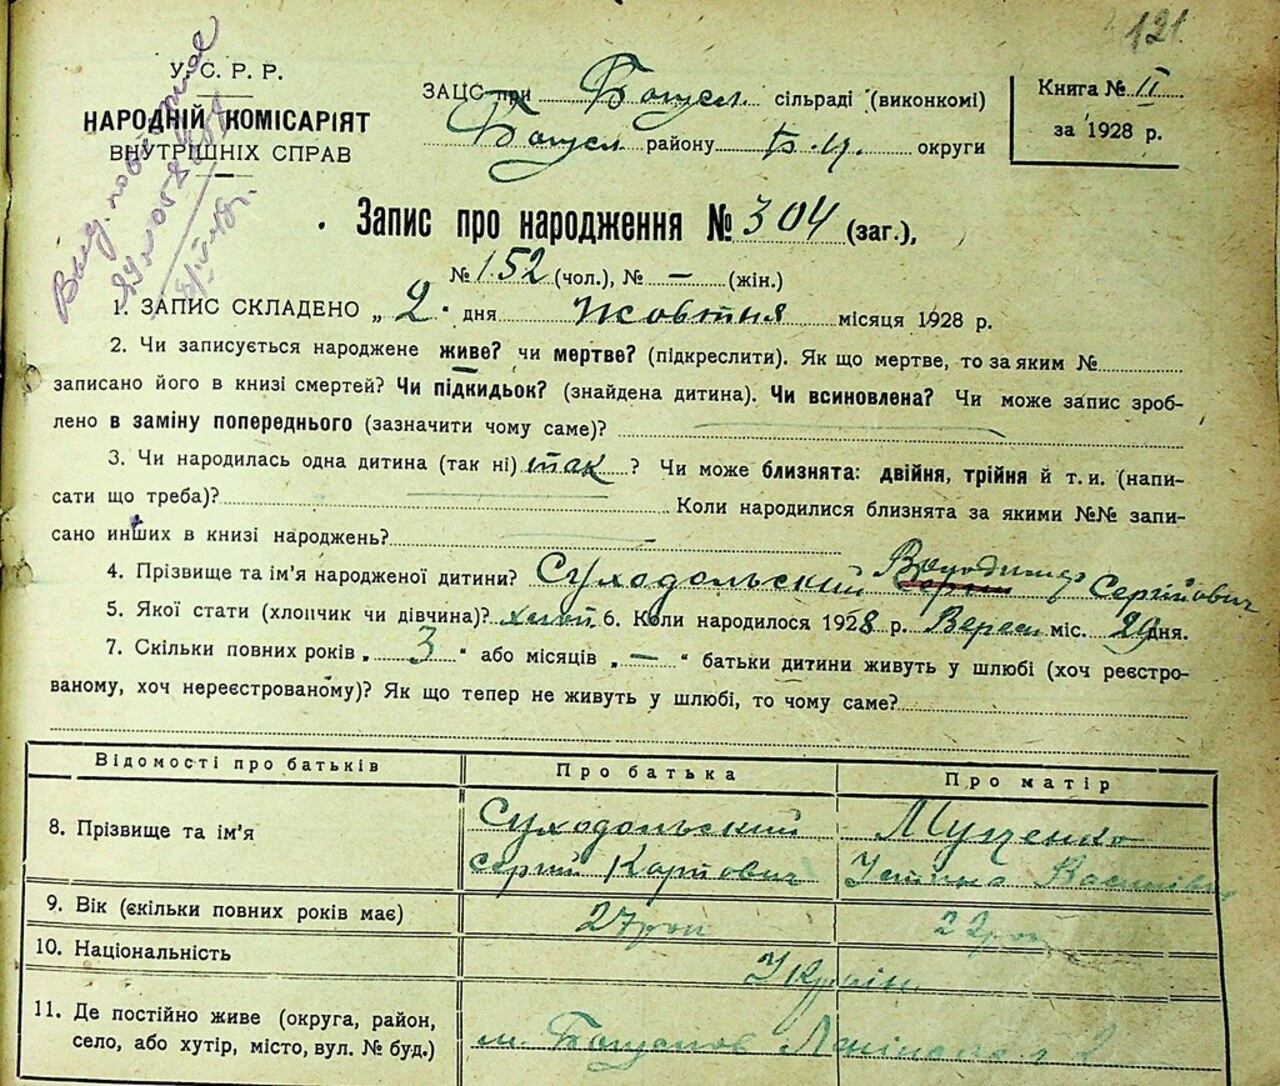 121.
У. С. Р. Р.
НАРОДНІЙ КОМІСАРІЯТ
ВНУТРІШНІХ СПРАВ
ЗАЦС при Богусл. сільраді (виконкомі)
Богусл району Б.Ц. округи
Книга № II
за 1928 р.
Запис про народження № 304 (заг.),
№ 152 (чол.), № — (жін.)
1. ЗАПИС СКЛАДЕНО „ 2 " дня жовтня місяця 1928 р.
2. Чи записується народжене живе? чи мертве? (підкреслити). Як що мертве, то за яким №
записано його в книзі смертей? Чи підкидьок? (знайдена дитина). Чи всиновлена? Чи може запис зроб-
лено в заміну попереднього (зазначити чому саме)?
3. Чи народилась одна дитина (так ні) так ? Чи може близнята: двійня, трійня й т. и. (напи-
сати що треба)? Коли народилися близнята за якими №№ запи-
сано инших в книзі народжень?
4. Прізвище та ім'я народженої дитини? Суходольский Володимир Сергійович
5. Якої стати (хлопчик чи дівчина)? 6. Коли народилося 1928 р. Вересн міс. 29 дня.
7. Скільки повних років „ 3 " або місяців „ — " батьки дитини живуть у шлюбі (хоч реєстро-
ваному, хоч нереєстрованому)? Як що тепер не живуть у шлюбі, то чому саме?
Відомості про батьків Про батька Про матір
8. Прізвище та ім'я Суходольский
Сергий Карпович Устина Василівна
9. Вік (скільки повних років має) 27 рок 22 рок
10. Національність Україн
11. Де постійно живе (округа, район,
село, або хутір, місто, вул. № буд.) м. Богуслов 2